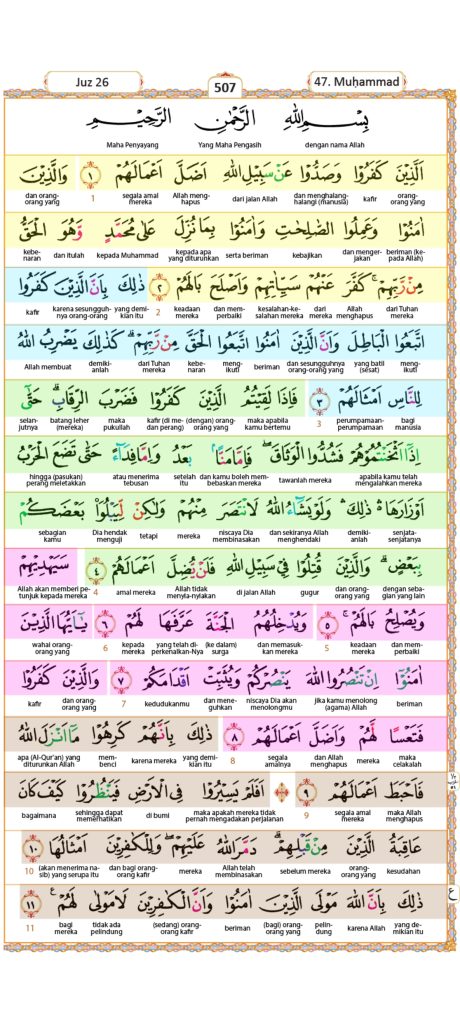 Juz 26
507
47. Muḥammad
بِسْمِ اللّٰهِ الرَّحْمٰنِ الرَّحِيْمِ
dengan nama Allah Yang Maha Pengasih Maha Penyayang
اَلَّذِيْنَ كَفَرُوْا وَصَدُّوْا عَنْ سَبِيْلِ اللّٰهِ اَضَلَّ اَعْمَالَهُمْ ١ وَالَّذِيْنَ
orang-orang yang kafir dan menghalang-halangi (manusia) dari jalan Allah Allah meng-hapus segala amal mereka 1 dan orang-orang yang
اٰمَنُوْا وَعَمِلُوا الصّٰلِحٰتِ وَاٰمَنُوْا بِمَا نُزِّلَ عَلٰى مُحَمَّدٍ وَّهُوَ الْحَقُّ
beriman (ke-pada Allah) dan menger-jakan kebajikan serta beriman kepada apa yang diturunkan kepada Muhammad dan itulah kebe-naran
مِنْ رَّبِّهِمْ ۙ كَفَّرَ عَنْهُمْ سَيِّاٰتِهِمْ وَاَصْلَحَ بَالَهُمْ ٢ ذٰلِكَ بِاَنَّ الَّذِيْنَ كَفَرُوا
dari Tuhan mereka Allah menghapus dari mereka kesalahan-ke-salahan mereka dan mem-perbaiki keadaan mereka 2 yang demi-kian itu karena sesungguh-nya orang-orang kafir
اتَّبَعُوا الْبَاطِلَ وَاَنَّ الَّذِيْنَ اٰمَنُوا اتَّبَعُوا الْحَقَّ مِنْ رَّبِّهِمْ ۗ كَذٰلِكَ يَضْرِبُ اللّٰهُ
mengi-kuti yang batil (sesat) dan sesungguhnya orang-orang yang beriman mengi-kuti kebe-naran dari Tuhan mereka demiki-anlah Allah membuat
لِلنَّاسِ اَمْثَالَهُمْ ٣ فَاِذَا لَقِيْتُمُ الَّذِيْنَ كَفَرُوْا فَضَرْبَ الرِّقَابِ ۗ حَتّٰٓى
bagi manusia perumpamaan-perumpamaan 3 maka apabila kamu bertemu (dengan) orang-orang yang kafir (di me-dan perang) maka pukullah batang leher (mereka) selan-jutnya
اِذَآ اَثْخَنْتُمُوْهُمْ فَشُدُّوا الْوَثَاقَ ۙ فَاِمَّا مَنًّاۢ بَعْدُ وَاِمَّا فِدَاۤءً حَتّٰى تَضَعَ الْحَرْبُ
apabila kamu telah mengalahkan mereka tawanlah mereka dan kamu boleh mem-bebaskan mereka setelah itu atau menerima tebusan hingga (pasukan) perang meletakkan
اَوْزَارَهَا ۛ ذٰلِكَ ۛ وَلَوْ يَشَاۤءُ اللّٰهُ لَانْتَصَرَ مِنْهُمْ وَلٰكِنْ لِّيَبْلُوَا۟ بَعْضَكُمْ
senjata-senjatanya demiki-anlah dan sekiranya Allah menghendaki niscaya Dia membinasakan mereka tetapi Dia hendak menguji sebagian kamu
بِبَعْضٍ ۗ وَالَّذِيْنَ قُتِلُوْا فِيْ سَبِيْلِ اللّٰهِ فَلَنْ يُّضِلَّ اَعْمَالَهُمْ ٤ سَيَهْدِيْهِمْ
dengan seba-gian yang lain dan orang-orang yang gugur di jalan Allah Allah tidak menyia-nyiakan amal mereka 4 Allah akan memberi pe-tunjuk kepada mereka
وَيُصْلِحُ بَالَهُمْ ۚ ٥ وَيُدْخِلُهُمُ الْجَنَّةَ عَرَّفَهَا لَهُمْ ٦ يٰٓاَيُّهَا الَّذِيْنَ
dan mem-perbaiki keadaan mereka 5 dan memasuk-kan mereka (ke dalam) surga yang telah di-perkenalkan-Nya kepada mereka 6 wahai orang-orang yang
اٰمَنُوْٓا اِنْ تَنْصُرُوا اللّٰهَ يَنْصُرْكُمْ وَيُثَبِّتْ اَقْدَامَكُمْ ٧ وَالَّذِيْنَ كَفَرُوْا
beriman jika kamu menolong (agama) Allah niscaya Dia akan menolongmu dan mene-guhkan kedudukanmu 7 dan orang-orang yang kafir
فَتَعْسًا لَّهُمْ وَاَضَلَّ اَعْمَالَهُمْ ٨ ذٰلِكَ بِاَنَّهُمْ كَرِهُوْا مَآ اَنْزَلَ اللّٰهُ
maka celakalah mereka dan Allah menghapus segala amalnya 8 yang demi-kian itu karena mereka mem-benci apa (Al-Qur'an) yang diturunkan Allah
فَاَحْبَطَ اَعْمَالَهُمْ ٩ اَفَلَمْ يَسِيْرُوْا فِى الْاَرْضِ فَيَنْظُرُوْا كَيْفَ كَانَ
maka Allah menghapus segala amal mereka 9 maka apakah mereka tidak pernah mengadakan perjalanan di bumi sehingga dapat memerhatikan bagaimana
عَاقِبَةُ الَّذِيْنَ مِنْ قَبْلِهِمْ ۗ دَمَّرَ اللّٰهُ عَلَيْهِمْ ۖ وَلِلْكٰفِرِيْنَ اَمْثَالُهَا ١٠
kesudahan orang-orang yang sebelum mereka Allah telah membinasakan mereka dan bagi orang-orang kafir (akan menerima na-sib) yang serupa itu 10
ذٰلِكَ بِاَنَّ اللّٰهَ مَوْلَى الَّذِيْنَ اٰمَنُوْا وَاَنَّ الْكٰفِرِيْنَ لَا مَوْلٰى لَهُمْ ۚ ١١
yang de-mikian itu karena Allah pelin-dung (bagi) orang-orang yang beriman (sedang) orang-orang kafir tidak ada pelindung bagi mereka 11
ع